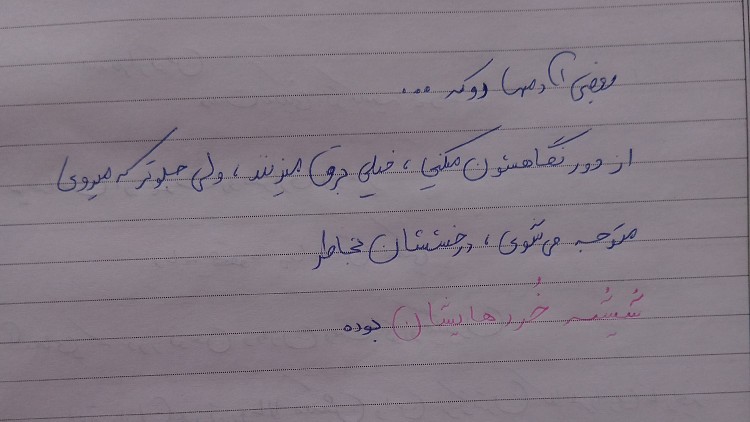 بعضی آدمها رو که ...
از دور نگاهشون میکنی ، خیلی برق میزنند ، ولی جلوتر که میروی
متوجه می شوی ، درخششان بخاطر
شیشه خُرد هایشان بوده